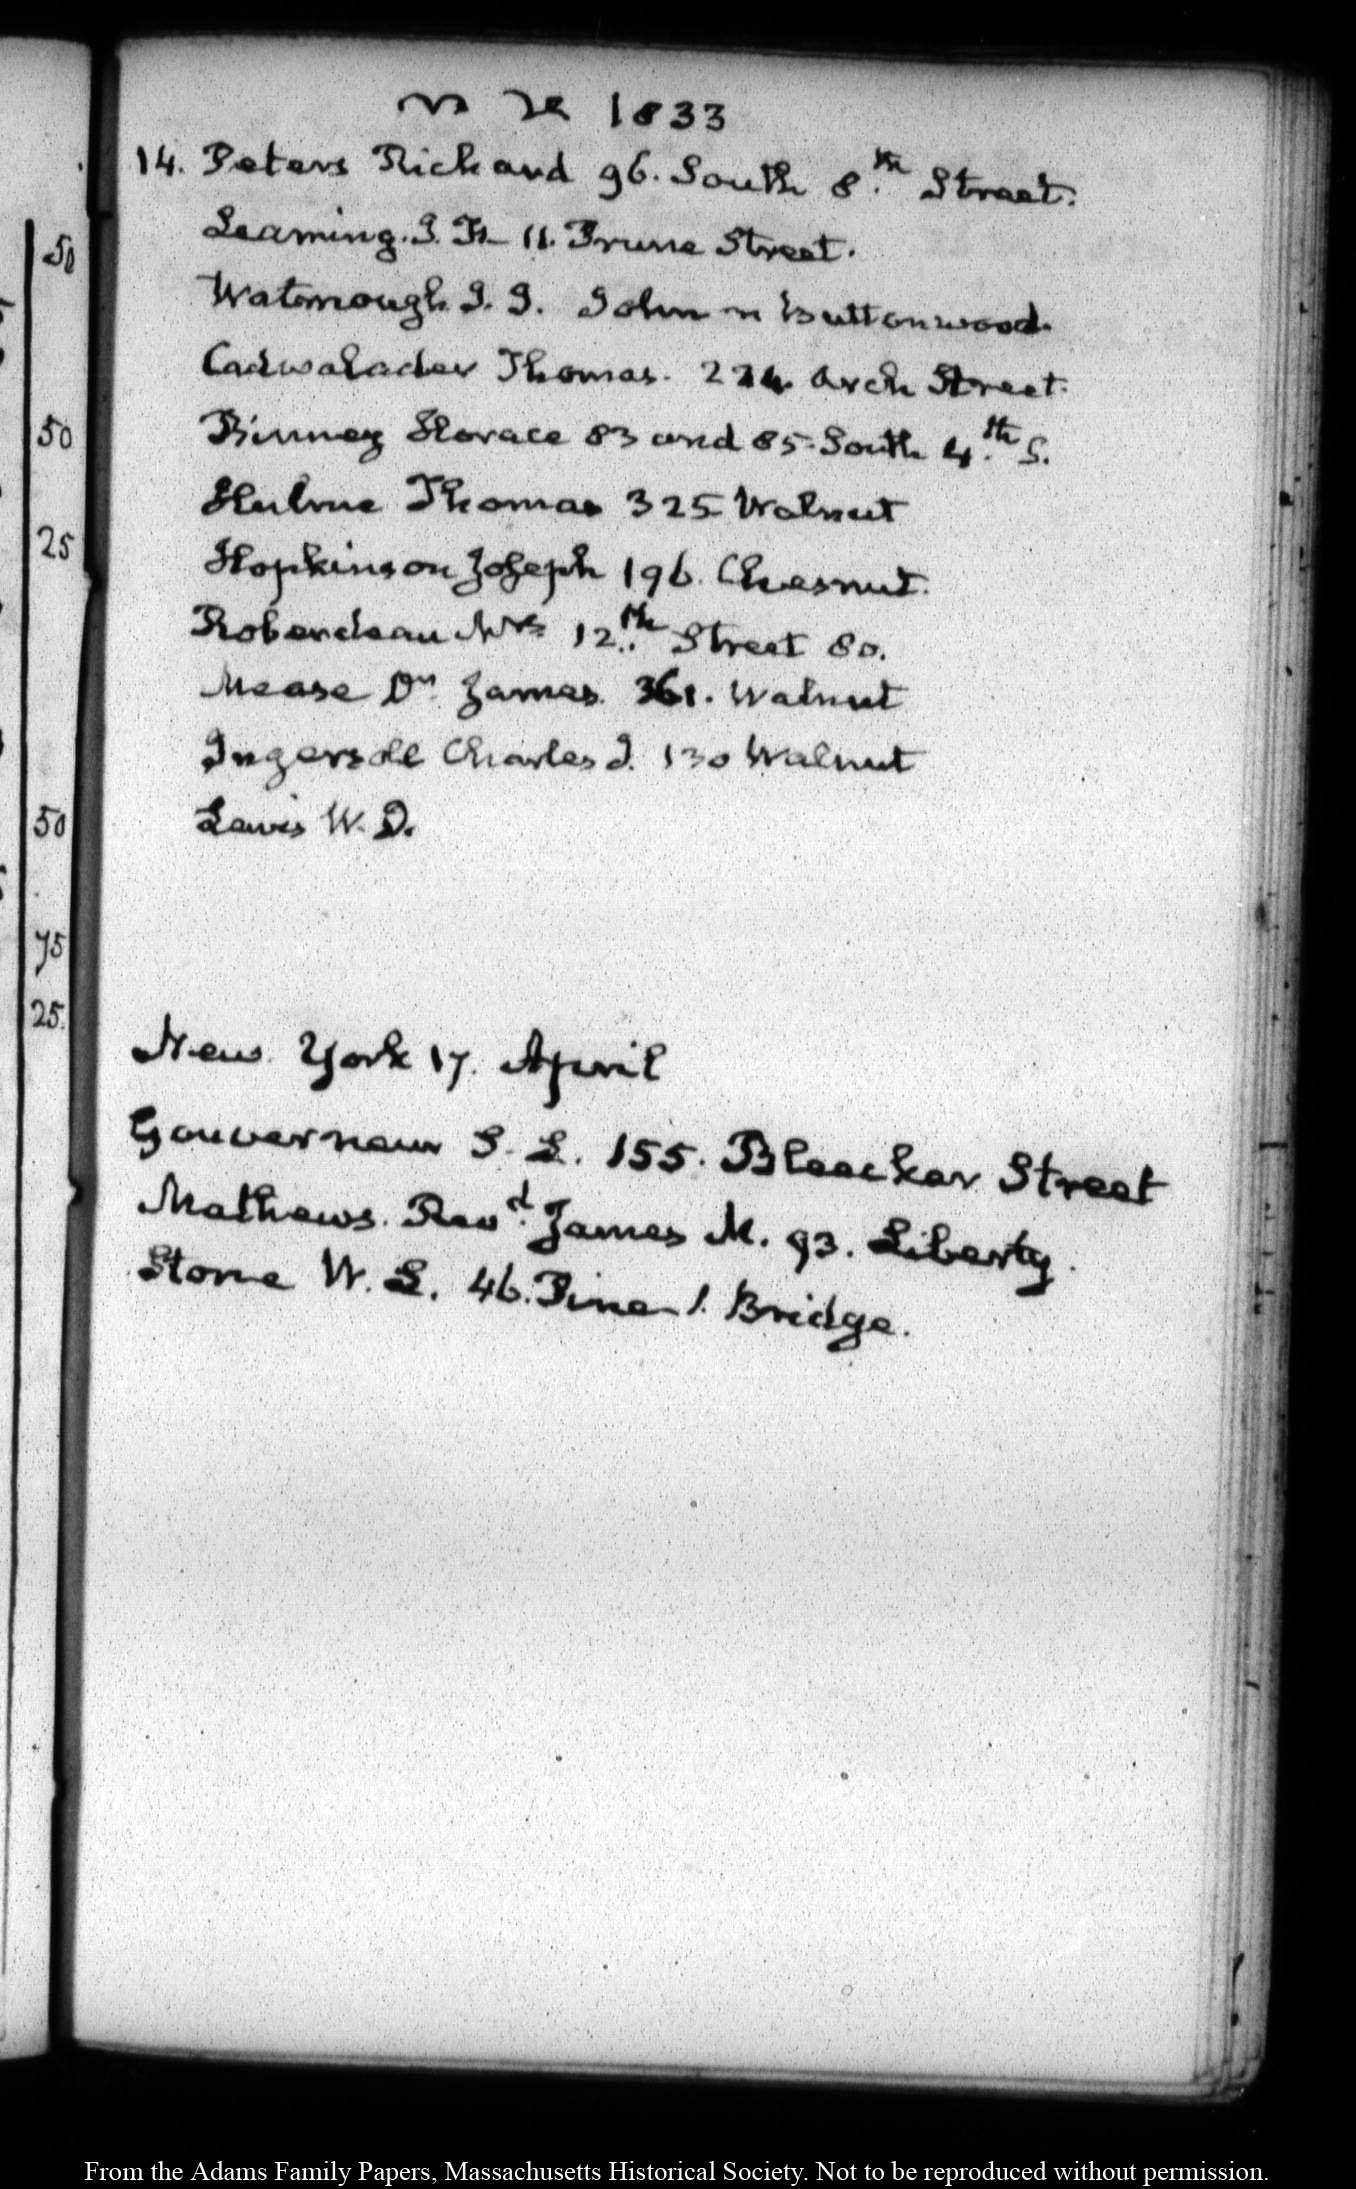 1833
14. Peters Richard 96. South 8.th Street.
Leaming. J. F. 11. Prune Street.
Watmough J. G. John n Buttonwood.
Cadwalader Thomas. 224. Arch Street.
Binney Horace 83 and 85 South 4.th S.
Hulme Thomas 325 Walnut
Hopkinson Joseph 196. Chesnut.
Roberdeau Mrs 12.th Street 80.
Mease Dr. James. 361. Walnut
Ingersoll Charles J. 130 Walnut
Lewis W. D.
New York 17. April
Gouverneur S. L. 155. Bleecker Street
Mathews. Revd. James M. 93. Liberty.
Stone W. L. 46. Pine 1. Bridge.
50
50
25
50
75
25.
From the Adams Family Papers, Massachusetts Historical Society. Not to be reproduced without permission.